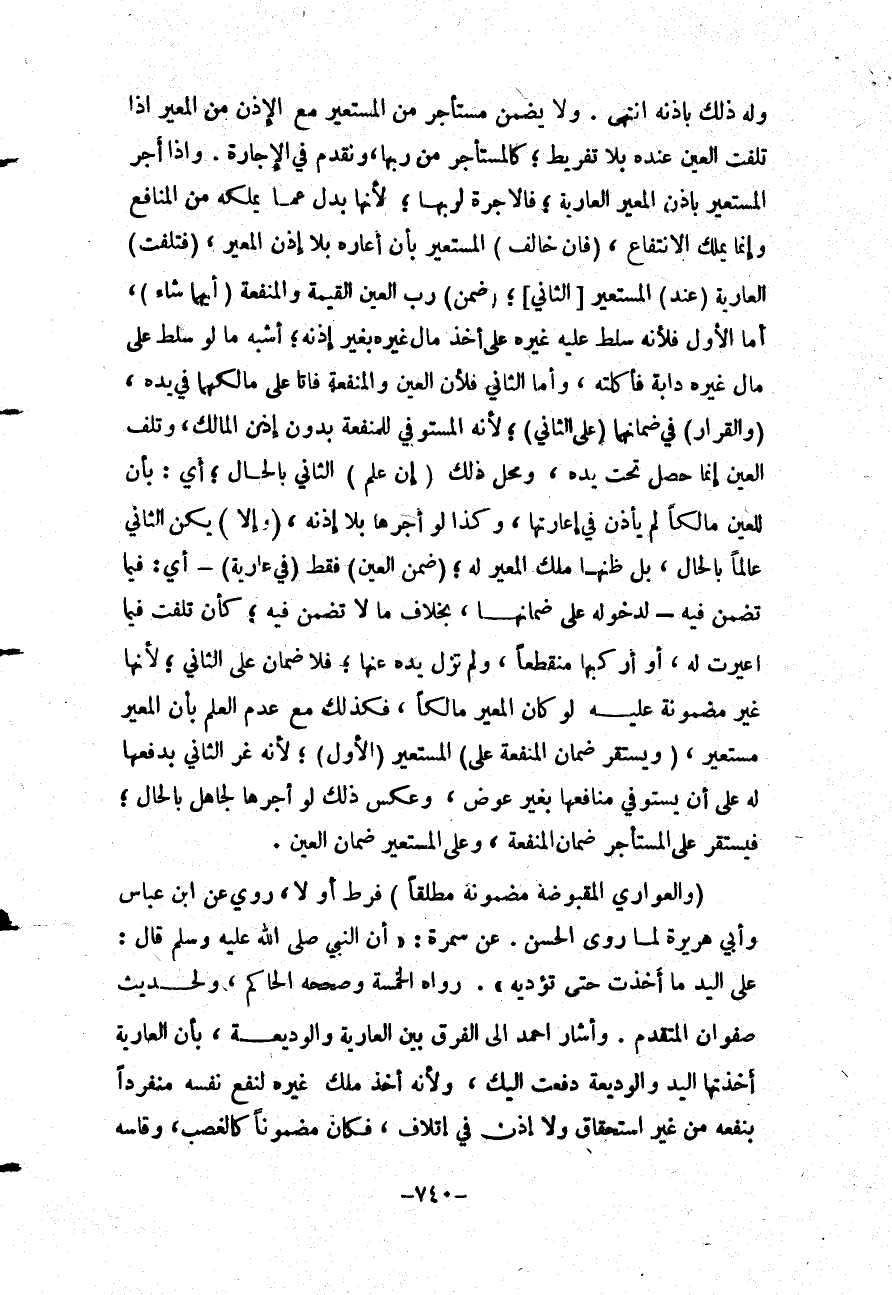 وله ذلك باذنه انتهى . ولا يضمن مستأجر من المستعير مع الإذن من المعير اذا
تلفت العين عنده بلا تفريط ؛ كالمستأجر من ربها، وتقدم في الإجارة . واذا أجر
المستعير باذن المعير العارية ؛ فالاجرة لربهـا ؛ لأنها بدل عمـا يملكه من المنافع
وإنما يملك الانتفاع ، (فان خالف ) المستعير بأن أعاره بلا إذن المعير ، (فتلفت)
العارية (عند) المستعير [ الثاني] ؛ (ضمن) رب العين القيمة والمنفعة ( أيهما شاء )،
أما الأول فلأنه سلط عليه غيره على أخذ مال غيره بغير إذنه؛ أشبه ما لو سلط على
مال غيره دابة فأكلته ، وأما الثاني فلأن العين والمنفعة فاتا على مالكهما في يده ،
(والقرار) في ضمانها (على الثاني) ؛ لأنه المستوفي للمنفعة بدون إذن المالك، وتلف
العين إنما حصل تحت يده ، ومحل ذلك ( إن علم ) الثاني بالحـال ؛ أي : بأن
للعين مالكاً لم يأذن في إعارتها ، وكذا لو أجرها بلا إذنه ، (وإلا ) يكن الثاني
عالماً بالحال ، بل ظنهـا ملك المعير له ؛ (ضمن العين) فقط (في عارية) – أي: فيما
تضمن فيه – لدخوله على ضمانهـــا ، بخلاف ما لا تضمن فيه ؛ كأن تلفت فيما
اعيرت له ، أو أركبها منقطعاً ، ولم تزل يده عنها ؛ فلا ضمان على الثاني ؛ لأنها
غير مضمونة عليـــه لو كان المعير مالكاً ، فكذلك مع عدم العلم بأن المعير
مستعير ، ( ويستقر ضمان المنفعة على) المستعير (الأول) ؛ لأنه غر الثاني بدفعها
له على أن يستوفي منافعها بغير عوض ، وعكس ذلك لو أجرها لجاهل بالحال ؛
فيستقر على المستأجر ضمان المنفعة ، وعلى المستعير ضمان العين .
(والعواري المقبوضة مضمونة مطلقاً ) فرط أو لا، روي عن ابن عباس
وأبي هريرة لمـا روى الحسن . عن سمرة : « أن النبي صلى الله عليه وسلم قال :
على اليد ما أخذت حتى تؤديه » . رواه الخمسة وصححه الحاكم ، ولحـــديث
صفوان المتقدم . وأشار احمد الى الفرق بين العارية والوديعـــة ، بأن العارية
أخذتها اليد والوديعة دفعت اليك ، ولأنه أخذ ملك غيره لنفع نفسه منفرداً
بنفعه من غير استحقاق ولا إذن في اتلاف ، فكان مضموناً كالغصب، وقاسه
–٧٤٠–